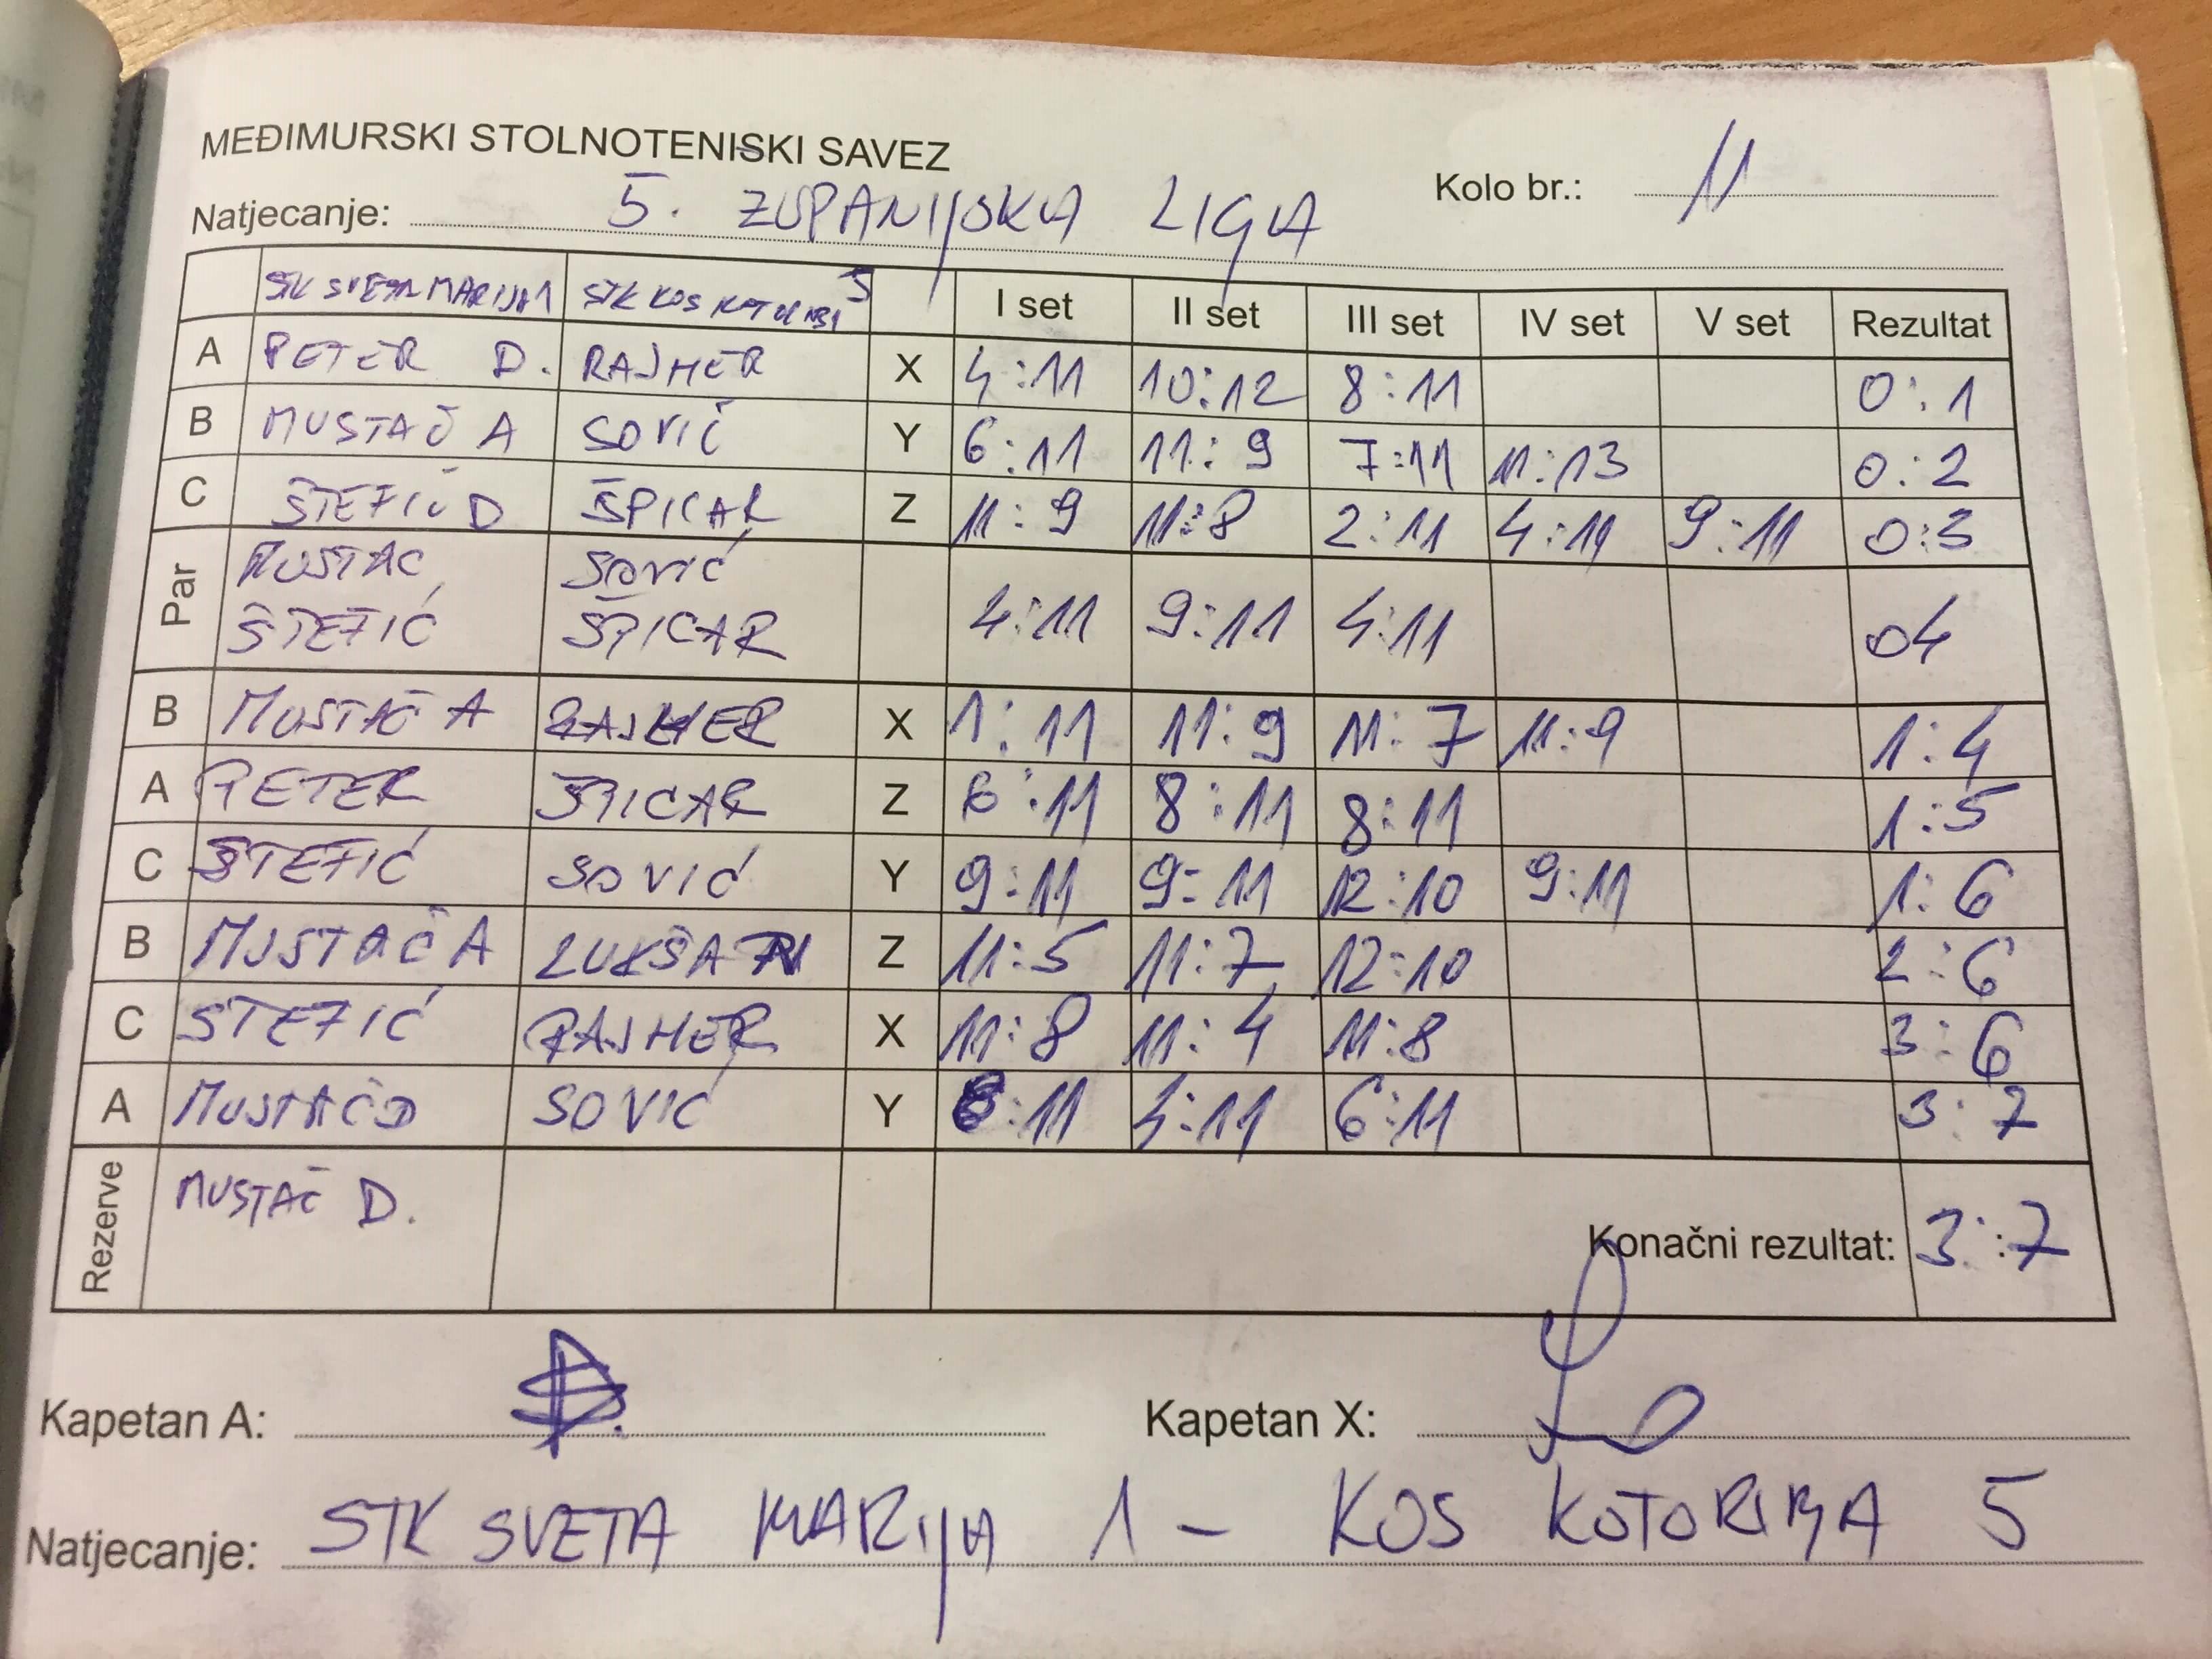 MEĐIMURSKI STOLNOTENISKI SAVEZ
Kolo br.: 11
Natjecanje: 5. ZUPANIJSKA LIGA
STK SVETA MARIJA 1 STK KOS KOTORIBA 5 I set II set III set IV set V set Rezultat
A PETER D. RAJHER X 4:11 10:12 8:11 0:1
B MUSTAČ A SOVIĆ Y 6:11 11:9 7:11 11:13 0:2
C ŠTEFIĆ D ŠPICAR Z 11:9 11:8 2:11 4:11 9:11 0:3
Par MUSTAČ SOVIĆ
ŠTEFIĆ ŠPICAR 4:11 9:11 4:11 04
B MUSTAČ A RAJHER X 1:11 11:9 11:7 11:9 1:4
A PETER ŠPICAR Z 6:11 8:11 8:11 1:5
C ŠTEFIĆ SOVIĆ Y 9:11 9:11 12:10 9:11 1:6
B MUSTAČ A LUKŠA Z 11:5 11:7 12:10 2:6
C STEFIĆ RAJHER X 11:8 11:4 11:8 3:6
A MUSTAČ D SOVIĆ Y 6:11 4:11 6:11 3:7
Rezerve MUSTAČ D.
Konačni rezultat: 3:7
Kapetan A: Kapetan X:
Natjecanje: STK SVETA MARIJA 1 - KOS KOTORIBA 5